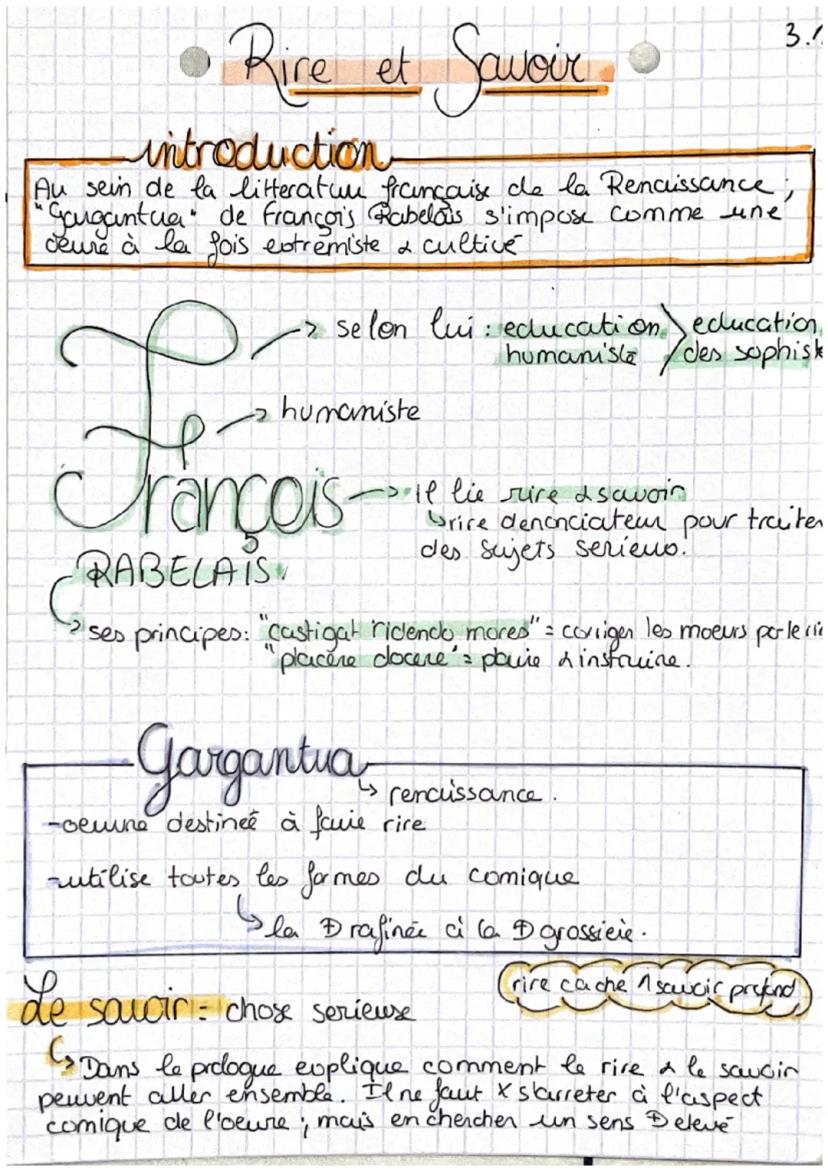 3.
Rire et Savoir
introduction
Au sein de la litteratuu française de la Renaissance ;
"Gargantua" de François Rabelais s'impose comme une
oeuvre à la fois extrémiste & cultivé
-> selon lui : education > education
humaniste des sophist
-> humaniste
François -> il lie rire & savoir
↳ rire denonciateur pour traiter
des sujets serieux.
RABELAIS
-> ses principes: "castigat ridendo mores" = corriger les moeurs par le ri
"placere docere" = plaire & instruire.
Gargantua
↳ renaissance.
-oeuvre destineé à faire rire
-utilise toutes les formes du comique
↳ la + rafinée à la + grossiere.
rire cache 1 savoir profond
Le savoir = chose serieuse
↳ Dans le prologue explique comment le rire & le savoir
peuvent aller ensemble. Il ne faut X s'arreter à l'aspect
comique de l'oeuvre ; mais en chercher un sens + elevé